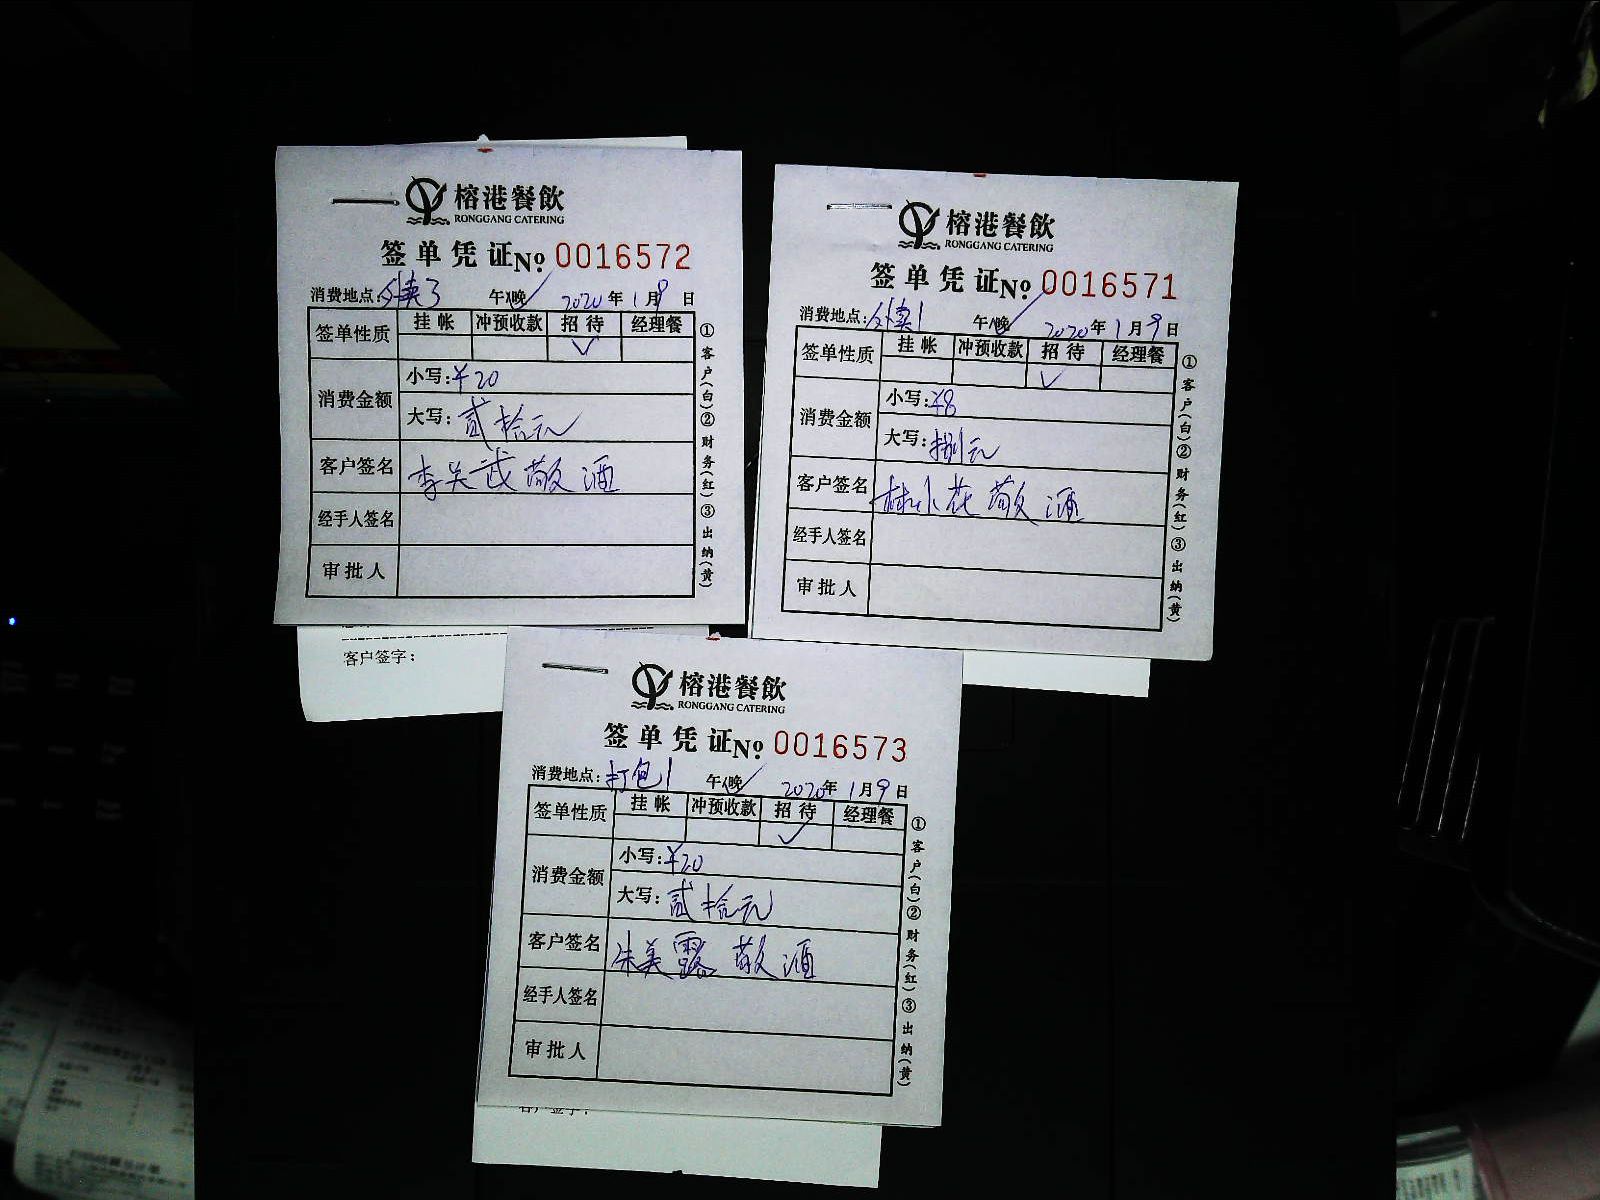 榕港餐飲
RONGGANG CATERING
签单凭证№ 0016572
消费地点：外卖3 午/晚 2020年1月9日
签单性质 挂帐 冲预收款 招待 经理餐
✓
消费金额 小写：¥20
大写：贰拾元
客户签名 李关武敬酒
经手人签名
审批人
①客户(白)②财务(红)③出纳(黄)
客户签字：
榕港餐飲
RONGGANG CATERING
签单凭证№ 0016571
消费地点：外卖1 午/晚 2020年1月9日
签单性质 挂帐 冲预收款 招待 经理餐
✓
消费金额 小写：¥8
大写：捌元
客户签名 林小花敬酒
经手人签名
审批人
①客户(白)②财务(红)③出纳(黄)
榕港餐飲
RONGGANG CATERING
签单凭证№ 0016573
消费地点：打包1 午/晚 2020年1月9日
签单性质 挂帐 冲预收款 招待 经理餐
✓
消费金额 小写：¥20
大写：贰拾元
客户签名 朱美露敬酒
经手人签名
审批人
①客户(白)②财务(红)③出纳(黄)
客户签字：